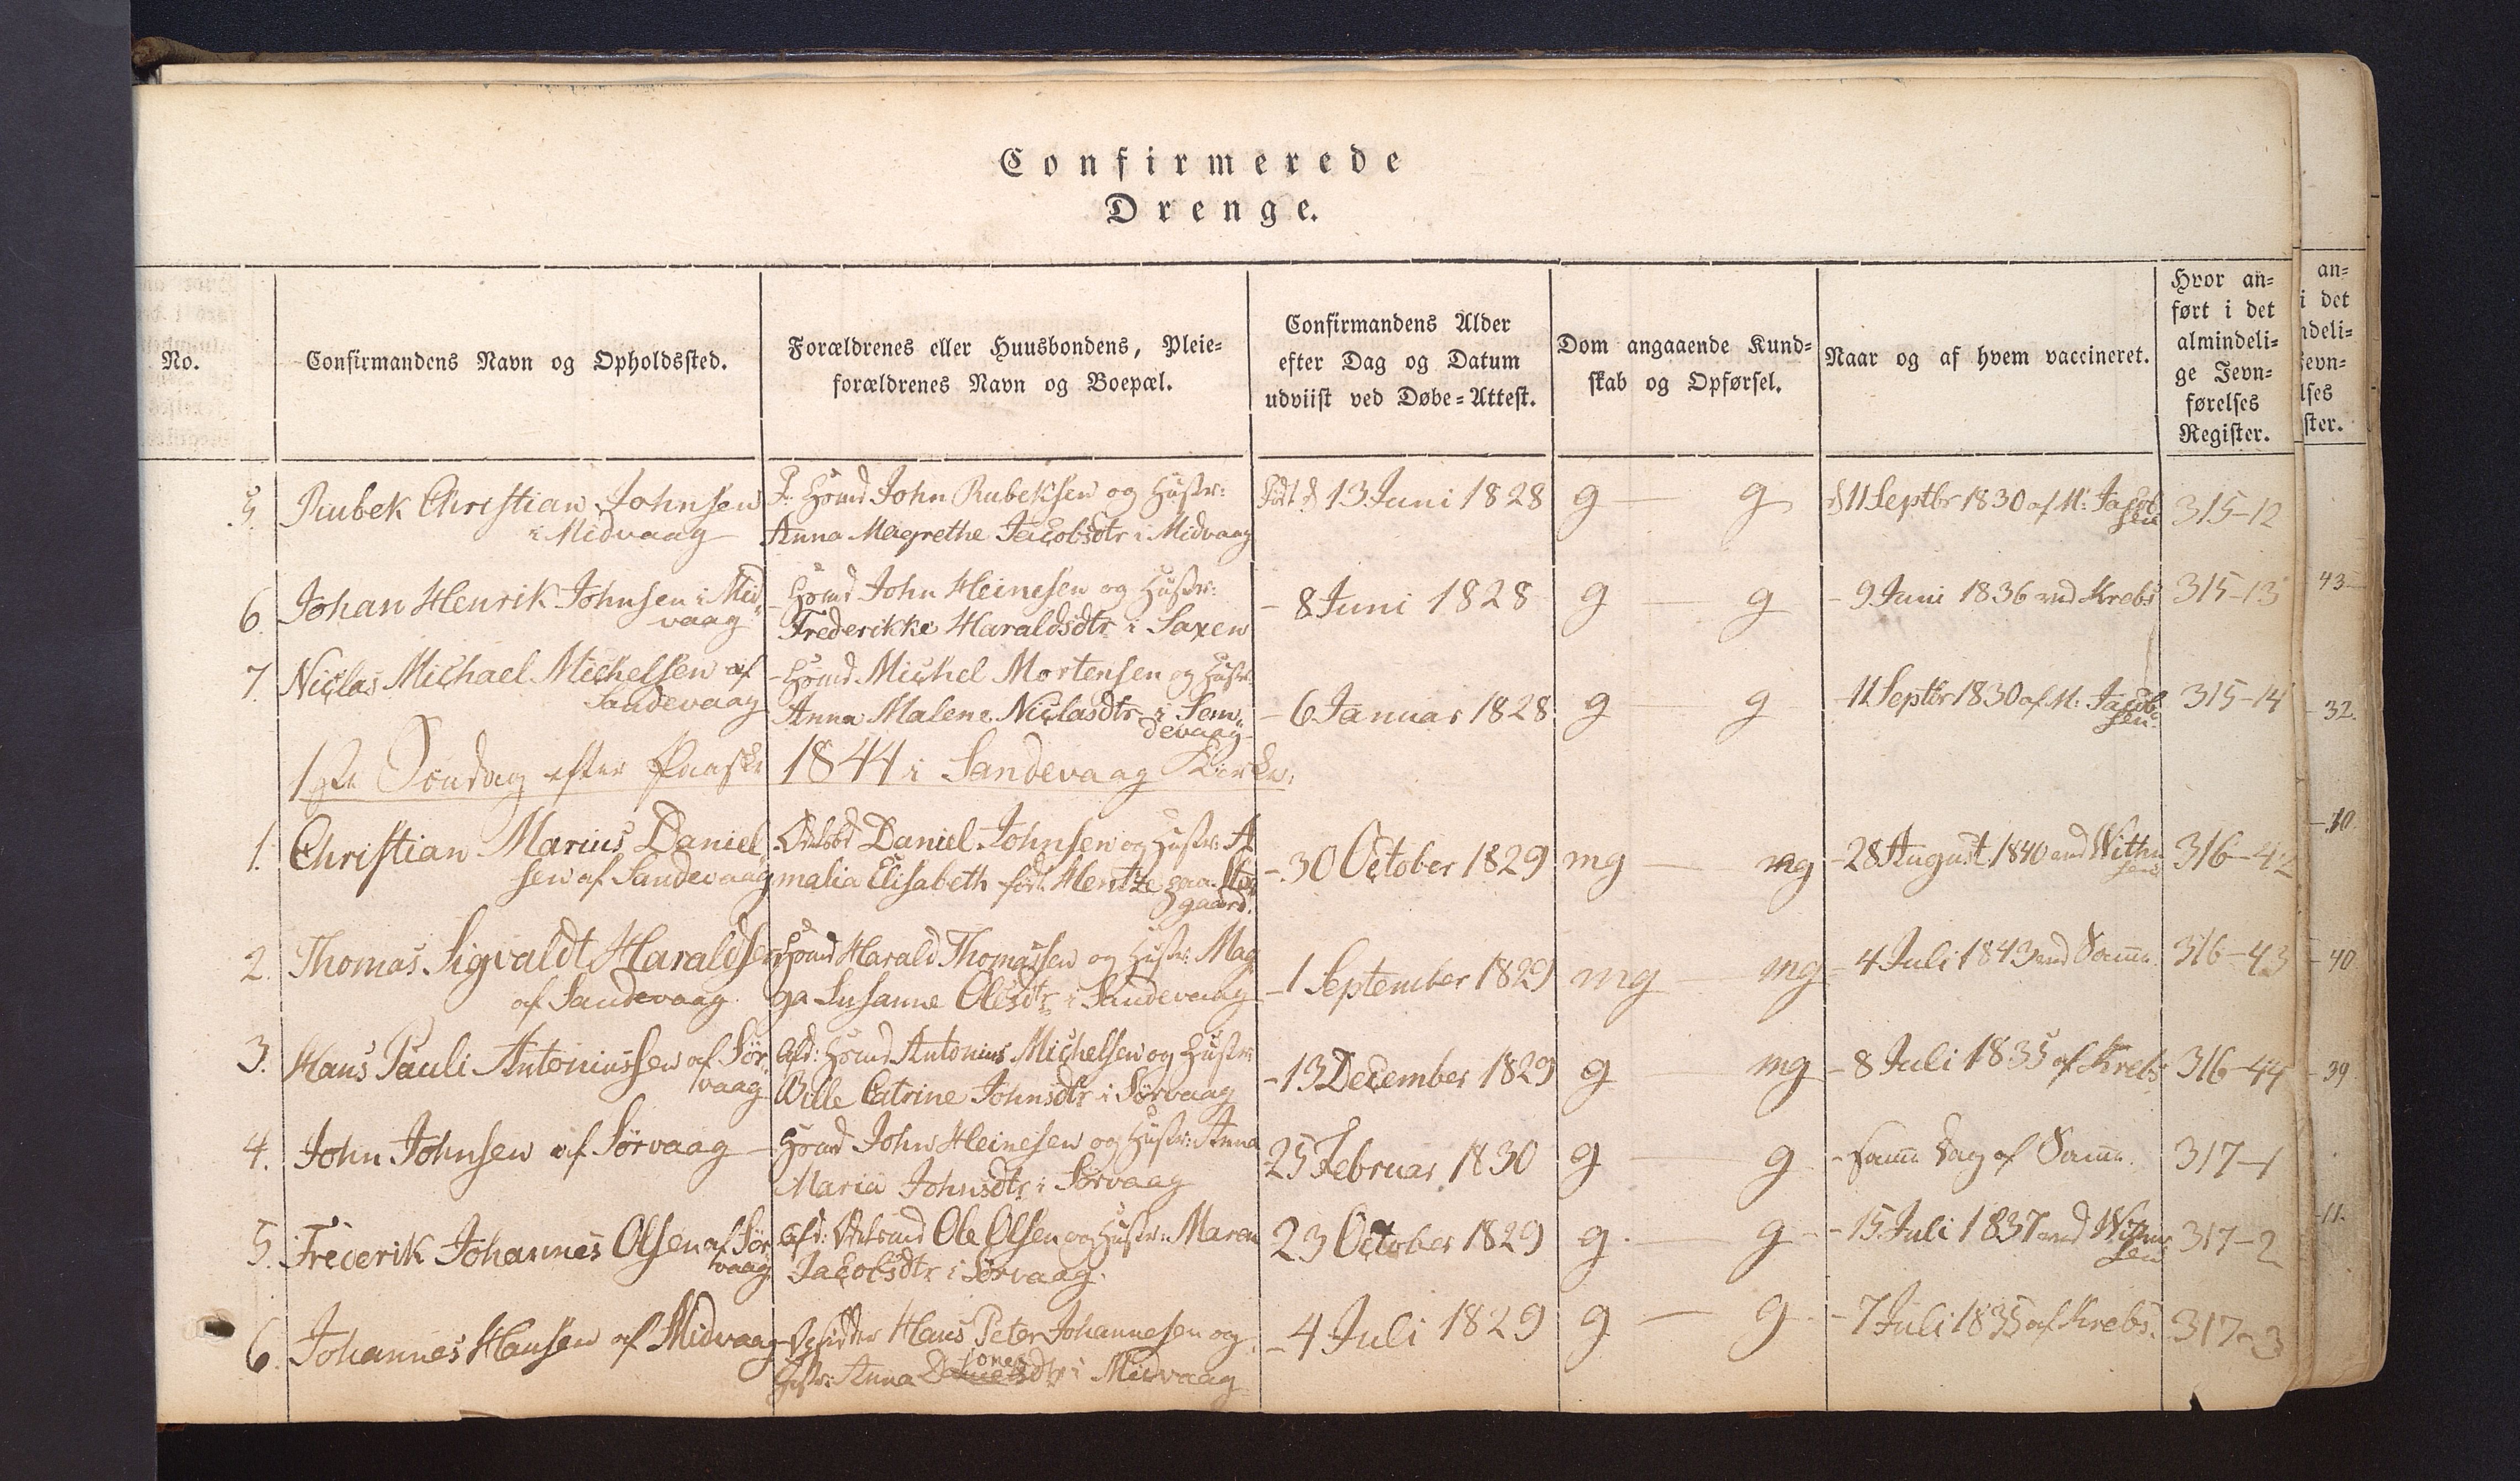 Confirmerede
Drenge.
No.
Confirmandens Navn og Opholdssted.
Forældrenes eller Huusbondens, Pleie=
forældrenes Navn og Boepæl.
Confirmandens Alder
efter Dag og Datum
udviist ved Døbe=Attest.
Dom angaaende Kund=
skab og Opførsel.
Naar og af hvem vaccineret.
Hvor an=
ført i det
almindeli=
ge Jevn=
førelses
Register.
an=
i det
ndeli=
Jevn=
lses
ster.
5. Rubek Christian Johnsen
i Midvaag
F. Hsmd John Rubeksen og Hustr:
Anna Magrethe Jacobsdtr i Midvaag
Født d 13 Juni 1828 g — g d 11 Septbr 1830 af M: Jacob
sen 315-12
6. Johan Henrik Johnsen i Mid
vaag
- Hsmd John Heinesen og Hustr:
Frederikke Haraldsdtr i Saxen
- 8 Juni 1828 g — g - 9 Juni 1836 ved Krebs 315-13 43
7. Niclas Michael Michelsen af
Sandevaag
- Hsmd Michel Mortensen og Hustr:
Anna Malene Niclasdtr i San
devaag
- 6 Januar 1828 g — g - 11 Septbr 1830 af M: Jacob
sen 315-14 32.
1ste Søndag efter Paaske 1844 i Sandevaag Kirke.
1. Christian Marius Daniel
sen af Sandevaag
Daniel Johnsen og Hustr: A
malia Elisabeth født Mentze paa
gaard.
- 30 October 1829 mg — mg - 28 August 1840 ved Withu
sen 316-42 10.
2. Thomas Sigvaldt Haraldsen
af Sandevaag
Hsmd Harald Thomassen og Hustr: Mag
ga Susanne Olesdtr i Sandevaag
- 1 September 1829 mg — mg - 4 Juli 1843 ved Samme 316-43 40
3. Hans Pauli Antoniussen af Sør
vaag
Afd: Hsmd Antonius Michelsen og Hustr:
Bille Catrine Johnsdtr i Sørvaag
- 13 December 1829 g — mg - 8 Juli 1835 af Krebs 316-44 39
4. John Johnsen af Sørvaag
Hsmd John Heinesen og Hustr: Anna
Maria Johnsdtr i Sørvaag
25 Februar 1830 g — g - Samme Dag af Samme. 317-1
5. Frederik Johannes Olsen af Sør
vaag
Afd: Ole Olsen og Hustr: Maren
Jacobsdtr i Sørvaag.
23 October 1829 g — g - 15 Juli 1837 ved Withu
sen 317-2 11.
6. Johannes Hansen af Midvaag
- Hans Peter Johannesen og
Hstr: Anna Jones dtr i Midvaag
- 4 Juli 1829 g — g - 7 Juli 1835 af Krebs. 317-3